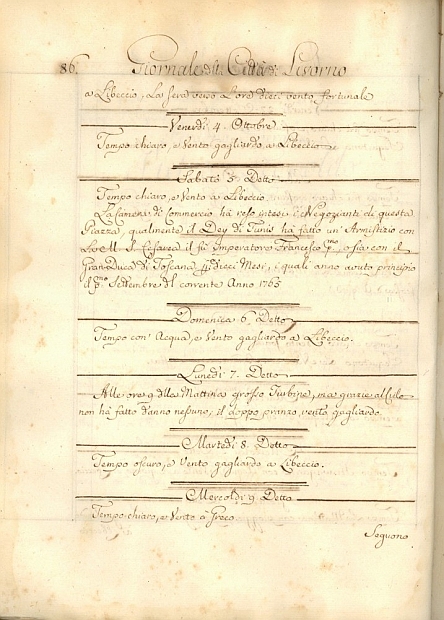 86. Giornale della Città di Livorno
a Libeccio, La sera verso L'ore dieci vento fortunale
Venerdi 4. Ottobre
Tempo chiaro, e Vento gagliardo, a Libeccio
Sabato 5. Detto
Tempo chiaro, e Vento a Libeccio.
La Camera di Commercio hà reso intesi i Negozianti di questa
Piazza, qualmente il Dey di Tunis hà fatto un' Armistizio con
La M. I. Cesarea il fù Imperatore Francesco P.mo, o sia con il
Gran Duca di Toscana p dieci Mesi, i quali anno avuto principio
il p.mo Settembre del corrente Anno 1765
Domenica 6. Detto
Tempo con Acqua, e Vento gagliardo a Libeccio.
Lunedi 7. Detto
Alle ore 9 della Mattina grosso Turbine, ma grazie al cielo
non hà fatto danno nessuno, il doppo pranzo vento gagliardo
Martedi 8. Detto
Tempo oscuro, e Vento gagliardo a Libeccio.
Mercoldi 9. Detto
Tempo chiaro, e Vento a Greco.
Seguono